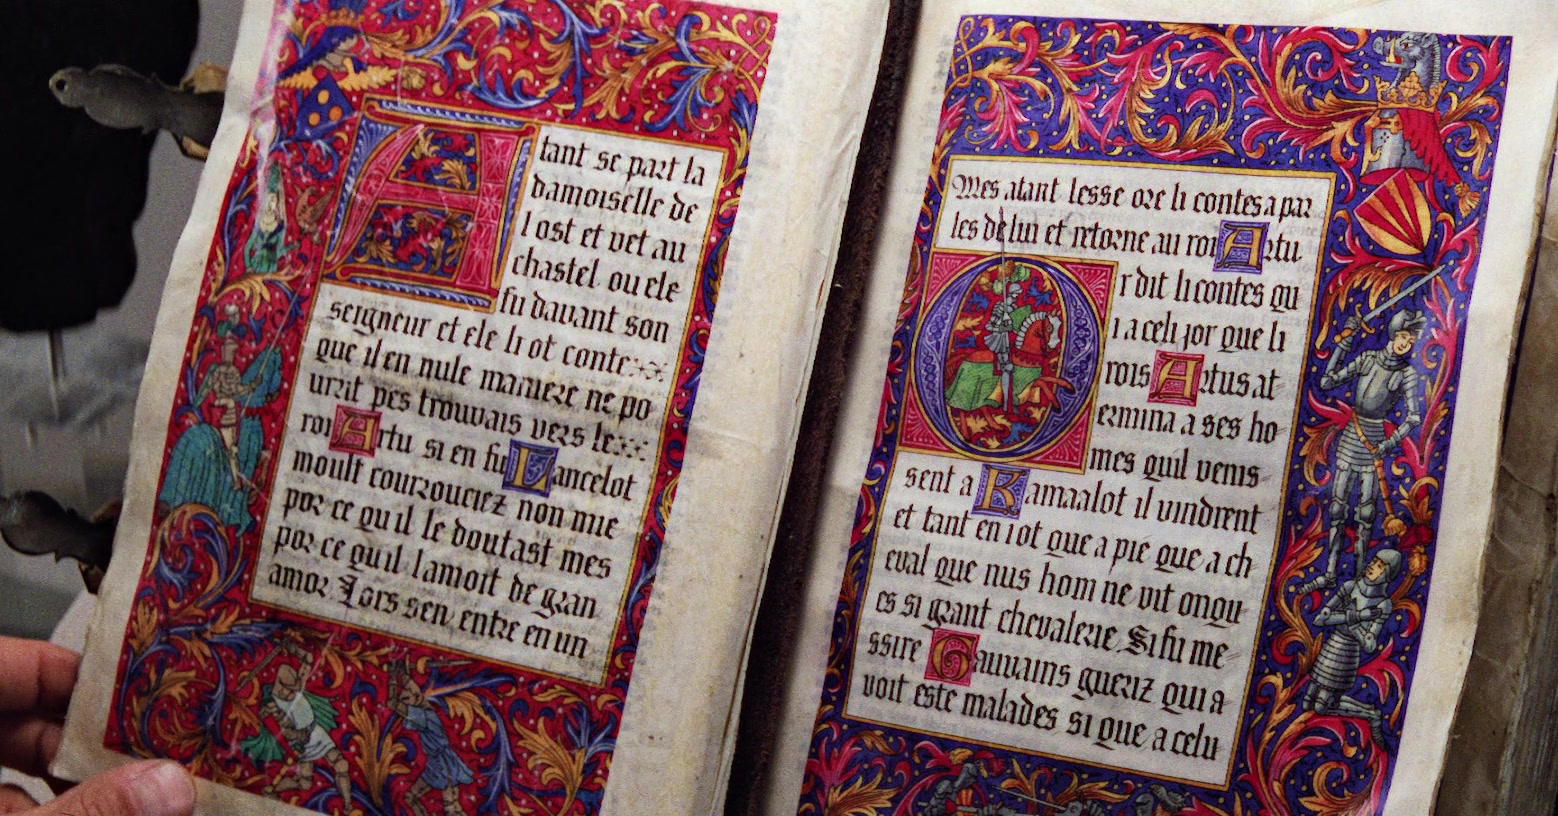 Atant se part la
damoiselle de
l ost et vet au
chastel ou ele
fu dauant son
seigneur et ele li ot conte
que il en nule maniere ne po
urrit pes trouvais vers le
roi Artu si en fu Lancelot
moult courrouciez non mie
por ce qu il le doutast mes
por ce qu il lamoit de gran
amor Lors sen entre en un
Mes atant lesse ore li contes a par
les de lui et retorne au roi Artu
Or dit li contes qu
i a celi jor que li
rois Artus at
ermina a ses ho
mes quil venis
sent a Kamaalot il vindrent
et tant en i ot que a pie que a ch
eval que nus hom ne vit onqu
es si grant chevalerie Si fu me
ssire Gauvains gueriz qui a
voit este malades si que a celu